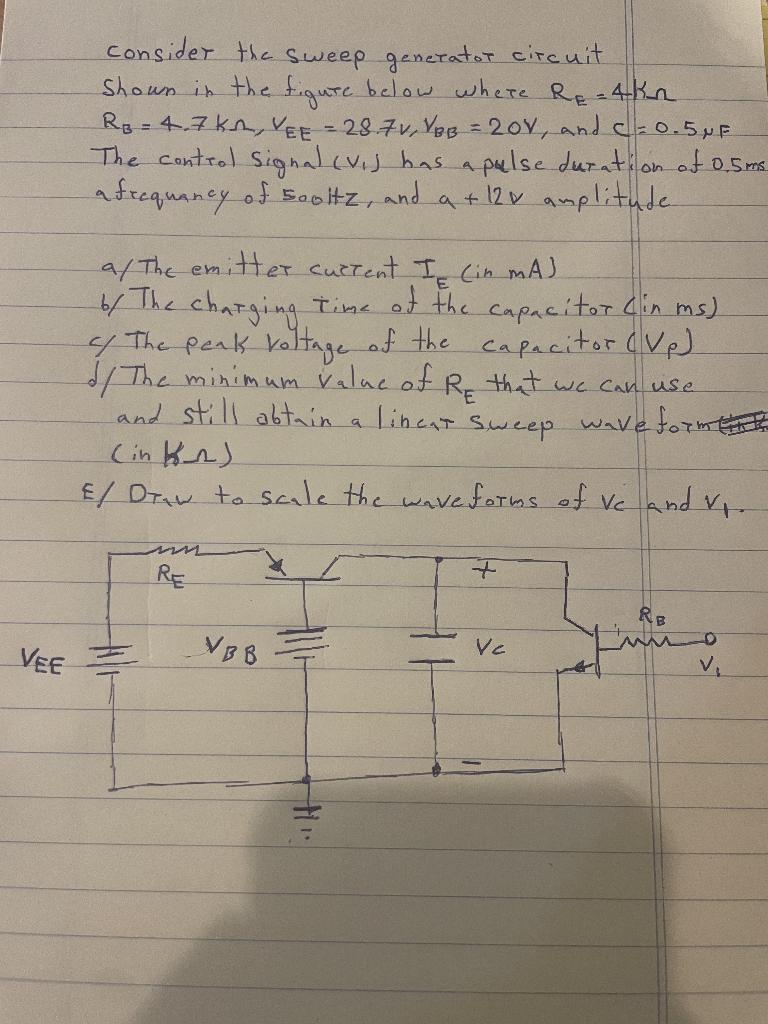 consider the sweep generator circuit
Shown in the figure below where RE = 4KΩ
RB = 4.7KΩ, VEE = 28.7V, VBB = 20V, and C = 0.5µF
The control signal (V1) has a pulse duration of 0.5ms
a frequancy of 500HZ, and a +12V amplitude
a/ The emitter current IE (in mA)
b/ The charging Time of the capacitor (in ms)
c/ The peak Voltage of the capacitor (VP)
d/ The minimum value of RE that we can use
and still obtain a linear sweep waveform
(in KΩ)
E/ Draw to scale the waveforms of Vc and V1.
RE
+
RB
VEE
VBB
Vc
V1
-